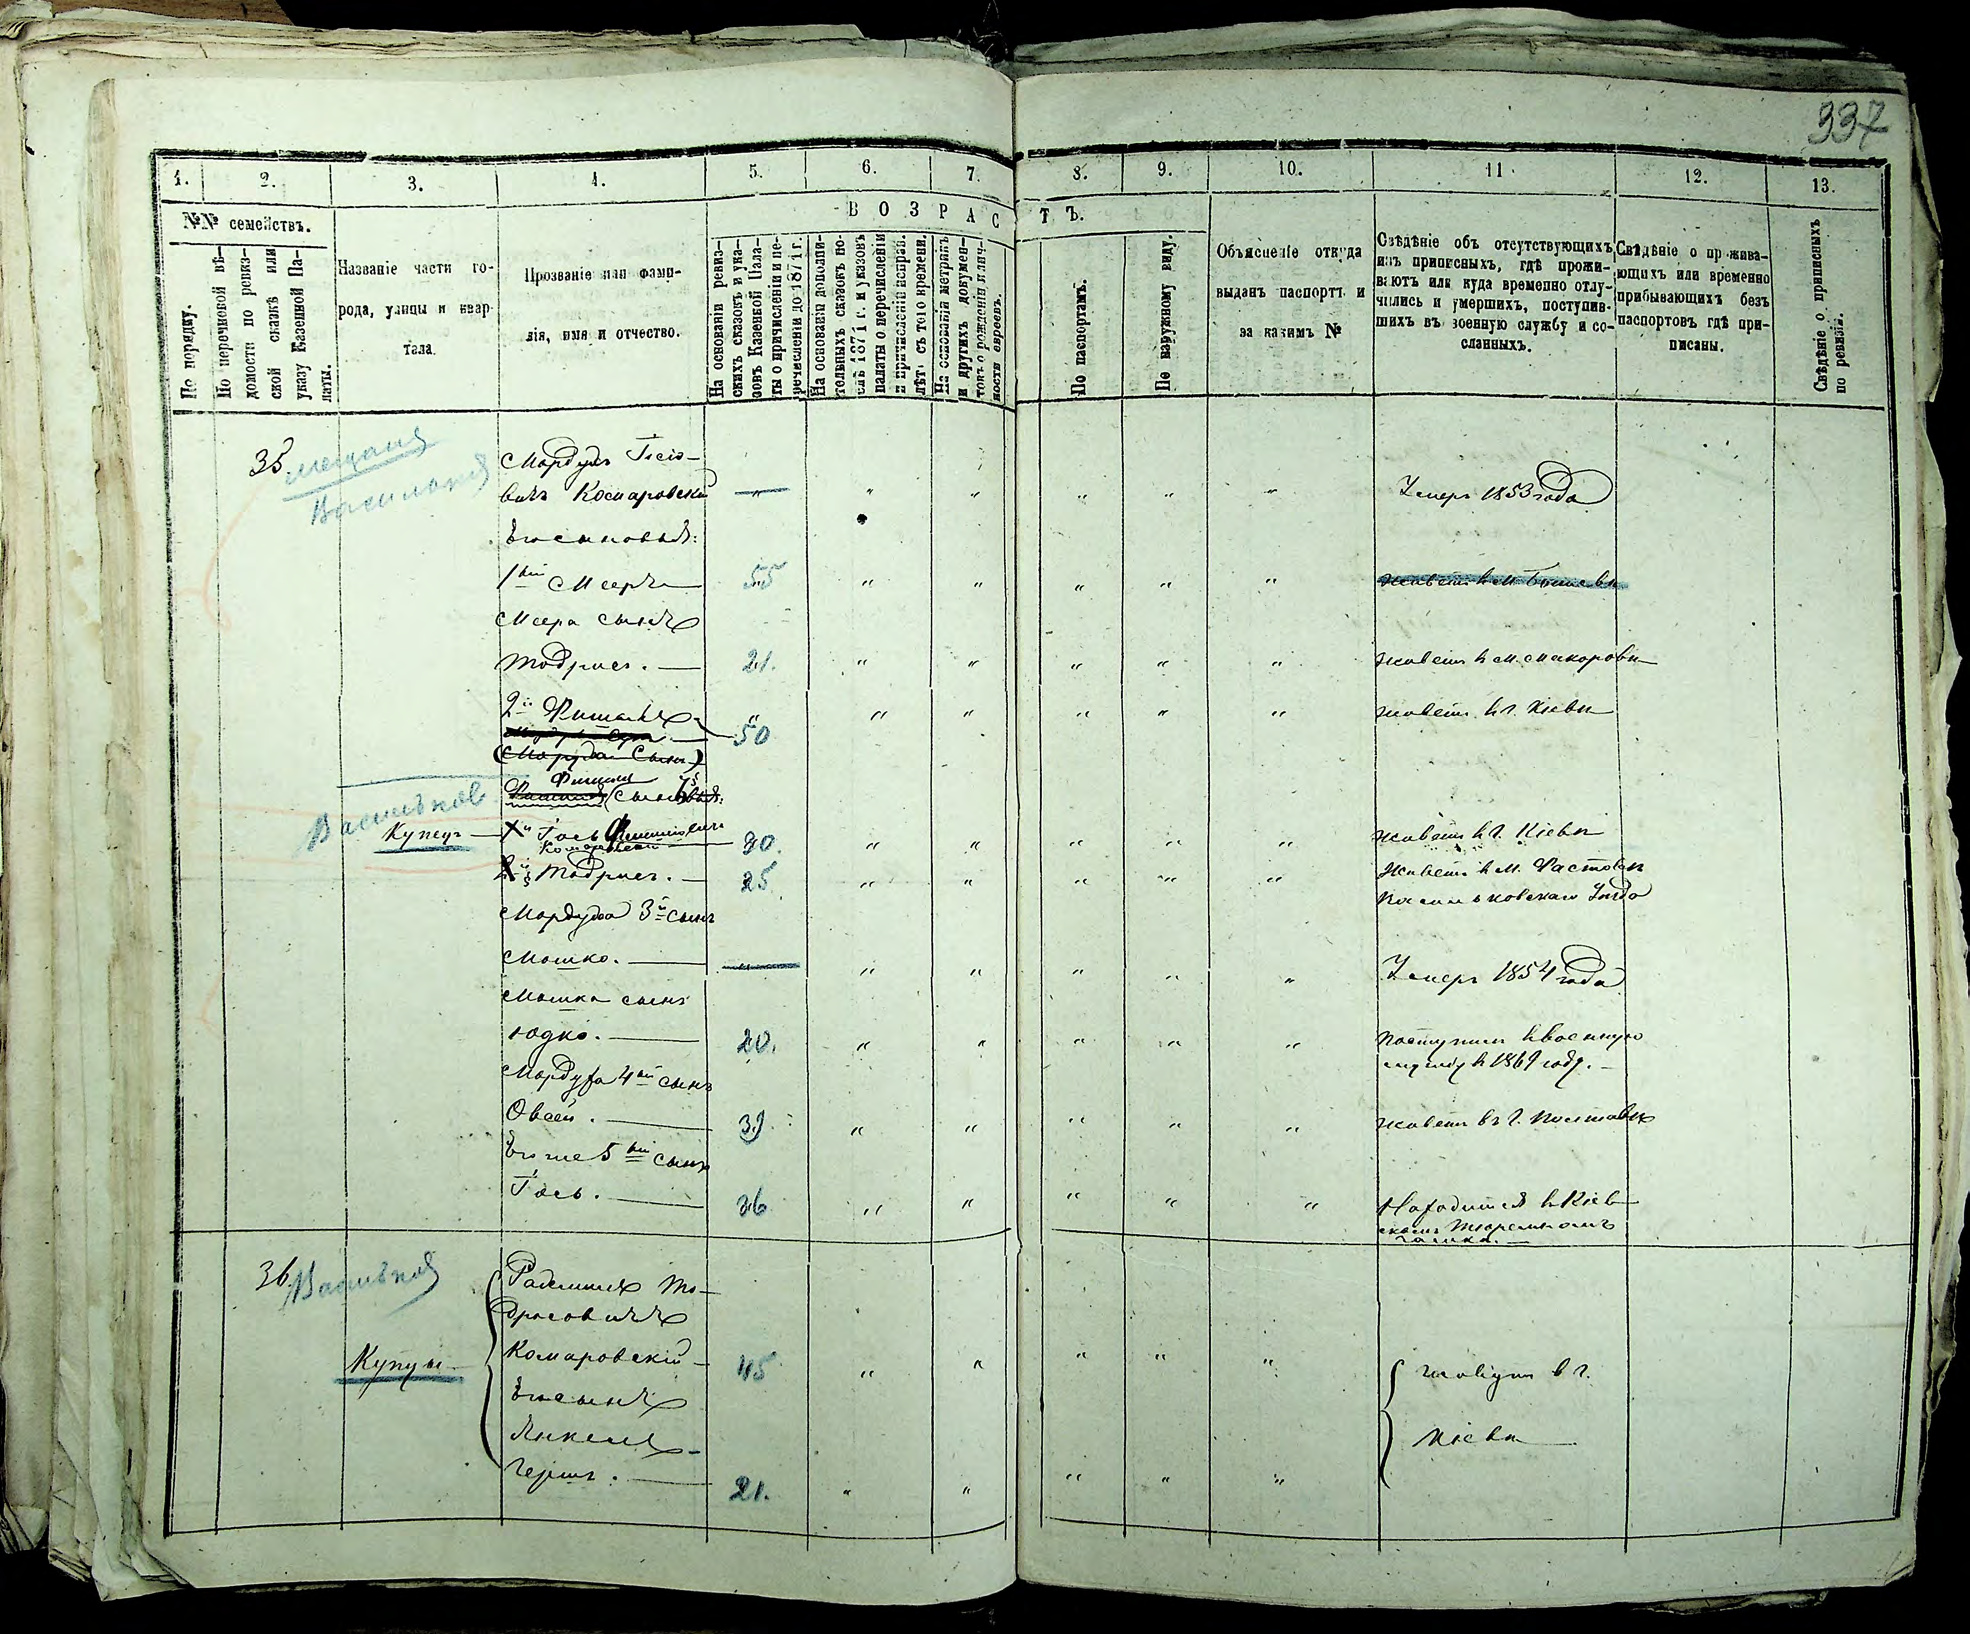 337
1. 2. 3. 4. 5. 6. 7. 8. 9. 10. 11. 12. 13.
№№ семействъ.
ВОЗРАСТЪ.
По порядку.
По перечневой вѣ-
домости по ревиз-
ской сказкѣ или
указу Казенной Па-
латы.
Названіе части го-
рода, улицы и квар-
тала.
Прозваніе или фами-
лія, имя и отчество.
На основаніи ревиз-
скихъ сказокъ и ука-
зовъ Казенной Пала-
ты о причисленіи и пе-
речисленіи до 1871 г.
На основаніи дополни-
тельныхъ сказокъ по-
слѣ 1871 г. и указовъ
палаты о перечисленіи
и причисленіи исправ.
лѣтъ съ того времени.
На основаніи метрикъ
и другихъ докумен-
товъ о рожденіи лич-
ности евреевъ.
По паспортамъ.
По наружному виду.
Объясненіе откуда
выданъ паспортъ и
за какимъ №
Свѣдѣніе объ отсутствующихъ
изъ приписныхъ, гдѣ прожи-
ваютъ или куда временно отлу-
чились и умершихъ, поступив-
шихъ въ военную службу и со-
сланныхъ.
Свѣдѣніе о прожива-
ющихъ или временно
прибывающихъ безъ
паспортовъ гдѣ при-
писаны.
Свѣдѣніе о приписныхъ
по ревизіи.
35. мещане
Васильков
Мордухъ Госіо-
вичъ Комаровскій " " " " " " Умеръ 1853 года
Его сыновья:
1ый Мееръ 55 " " " " " живетъ в м. Бышевѣ
Меера сынъ
Тодрисъ. 21. " " " " " живетъ в м. Макаровѣ
2й Фишель 50 " " " " " живетъ в г. Кіевѣ
(Мордуха Сынъ)
Фишеля сыновья:
Васильков
Купецъ Гось Фишелевичъ 30. " " " " " живетъ в г. Кіевѣ
Комаровскій
2й Тодрисъ. 25 " " " " " Живетъ в м. Фастовѣ
Васильковскаго Уезда
Мордуха 3й сынъ
Мошко. " " " " " " Умеръ 1854 года
Мошка сынъ
Юдко. 20. " " " " " Поступилъ в военную
службу в 1869 году.
Мордуха 4ый сынъ
Овсей. 39 " " " " " живетъ въ г. Полтавѣ
Его же 5ый сынъ
Гось. 36 " " " " " Находится в Кіев-
скомъ тюремномъ
замкѣ.
36. Васильков
Купцы
Рахмиль То-
дрисовичъ
Комаровскій 45 " " " " " живутъ в г.
Его сынъ
Янкель Кіевѣ
Гершъ. 21. " " " " "